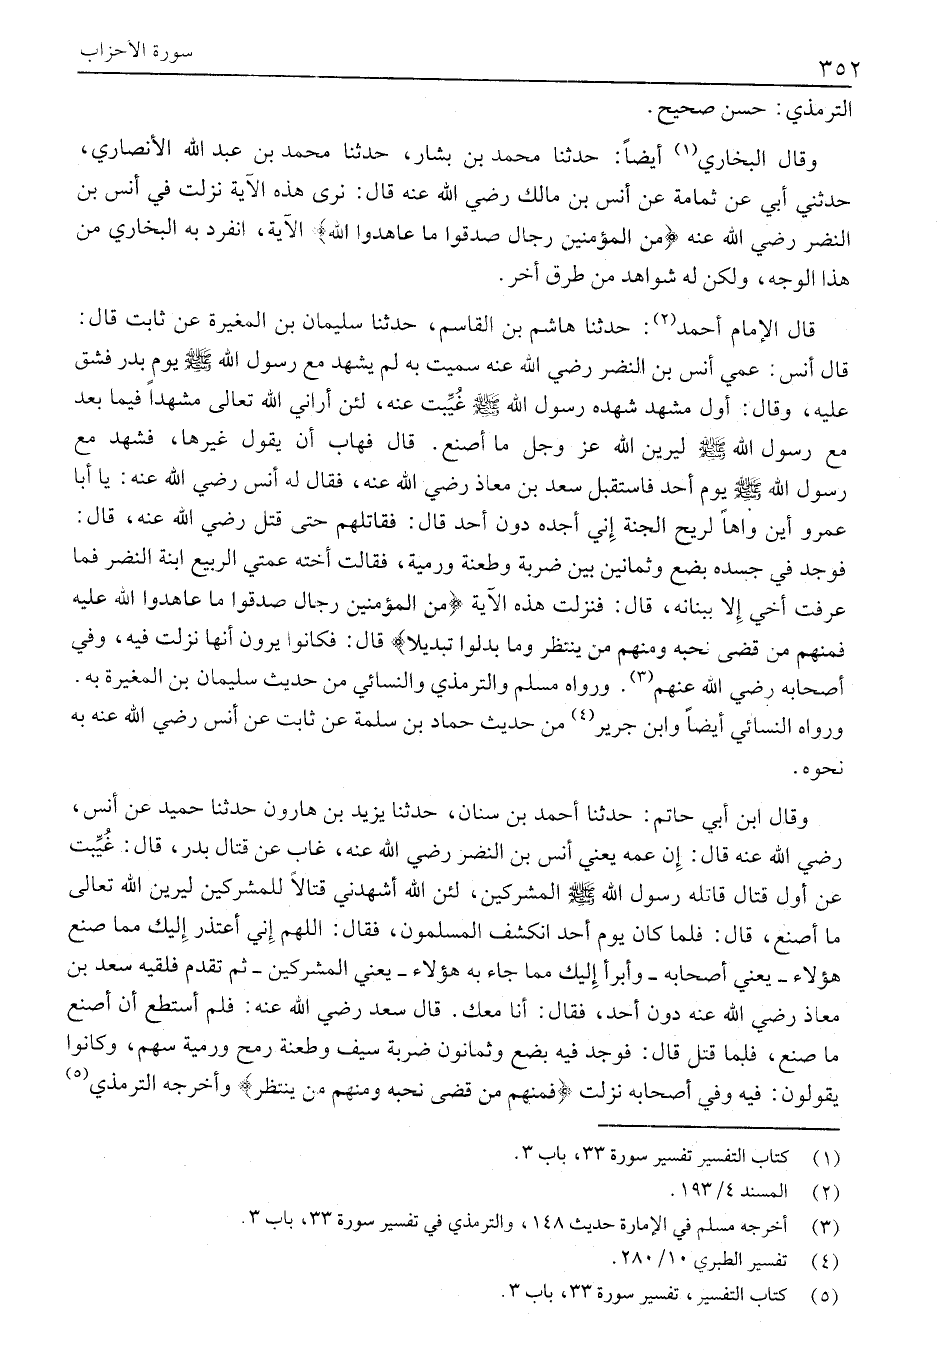 سورة الأحزاب
٣٥٢
الترمذي: حسن صحيح.
وقال البخاري(١) أيضاً: حدثنا محمد بن بشار، حدثنا محمد بن عبد الله الأنصاري،
حدثني أبي عن ثمامة عن أنس بن مالك رضي الله عنه قال: نرى هذه الآية نزلت في أنس بن
النضر رضي الله عنه ﴿من المؤمنين رجال صدقوا ما عاهدوا الله﴾ الآية، انفرد به البخاري من
هذا الوجه، ولكن له شواهد من طرق أخر.
قال الإمام أحمد(٢): حدثنا هاشم بن القاسم، حدثنا سليمان بن المغيرة عن ثابت قال:
قال أنس: عمي أنس بن النضر رضي الله عنه سميت به لم يشهد مع رسول الله ﷺ يوم بدر فشق
عليه، وقال: أول مشهد شهده رسول الله ﷺ غُيِّبت عنه، لئن أراني الله تعالى مشهداً فيما بعد
مع رسول الله ﷺ ليرين الله عز وجل ما أصنع. قال فهاب أن يقول غيرها، فشهد مع
رسول الله ﷺ يوم أحد فاستقبل سعد بن معاذ رضي الله عنه، فقال له أنس رضي الله عنه: يا أبا
عمرو أين واهاً لريح الجنة إني أجده دون أحد قال: فقاتلهم حتى قتل رضي الله عنه، قال:
فوجد في جسده بضع وثمانين بين ضربة وطعنة ورمية، فقالت أخته عمتي الربيع ابنة النضر فما
عرفت أخي إلا ببنانه، قال: فنزلت هذه الآية ﴿من المؤمنين رجال صدقوا ما عاهدوا الله عليه
فمنهم من قضى نحبه ومنهم من ينتظر وما بدلوا تبديلا﴾ قال: فكانوا يرون أنها نزلت فيه، وفي
أصحابه رضي الله عنهم(٣). ورواه مسلم والترمذي والنسائي من حديث سليمان بن المغيرة به.
ورواه النسائي أيضاً وابن جرير(٤) من حديث حماد بن سلمة عن ثابت عن أنس رضي الله عنه به
نحوه.
وقال ابن أبي حاتم: حدثنا أحمد بن سنان، حدثنا يزيد بن هارون حدثنا حميد عن أنس،
رضي الله عنه قال: إن عمه يعني أنس بن النضر رضي الله عنه، غاب عن قتال بدر، قال: غُيِّبت
عن أول قتال قاتله رسول الله ﷺ المشركين، لئن الله أشهدني قتالاً للمشركين ليرين الله تعالى
ما أصنع، قال: فلما كان يوم أحد انكشف المسلمون، فقال: اللهم إني أعتذر إليك مما صنع
هؤلاء ـ يعني أصحابه ـ وأبرأ إليك مما جاء به هؤلاء ـ يعني المشركين ـ ثم تقدم فلقيه سعد بن
معاذ رضي الله عنه دون أحد، فقال: أنا معك. قال سعد رضي الله عنه: فلم أستطع أن أصنع
ما صنع، فلما قتل قال: فوجد فيه بضع وثمانون ضربة سيف وطعنة رمح ورمية سهم، وكانوا
يقولون: فيه وفي أصحابه نزلت ﴿فمنهم من قضى نحبه ومنهم من ينتظر﴾ وأخرجه الترمذي(٥)
(١) كتاب التفسير تفسير سورة ٣٣، باب ٣.
(٢) المسند ٤/ ١٩٣.
(٣) أخرجه مسلم في الإمارة حديث ١٤٨، والترمذي في تفسير سورة ٣٣، باب ٣.
(٤) تفسير الطبري ١٠/ ٢٨٠.
(٥) كتاب التفسير، تفسير سورة ٣٣، باب ٣.